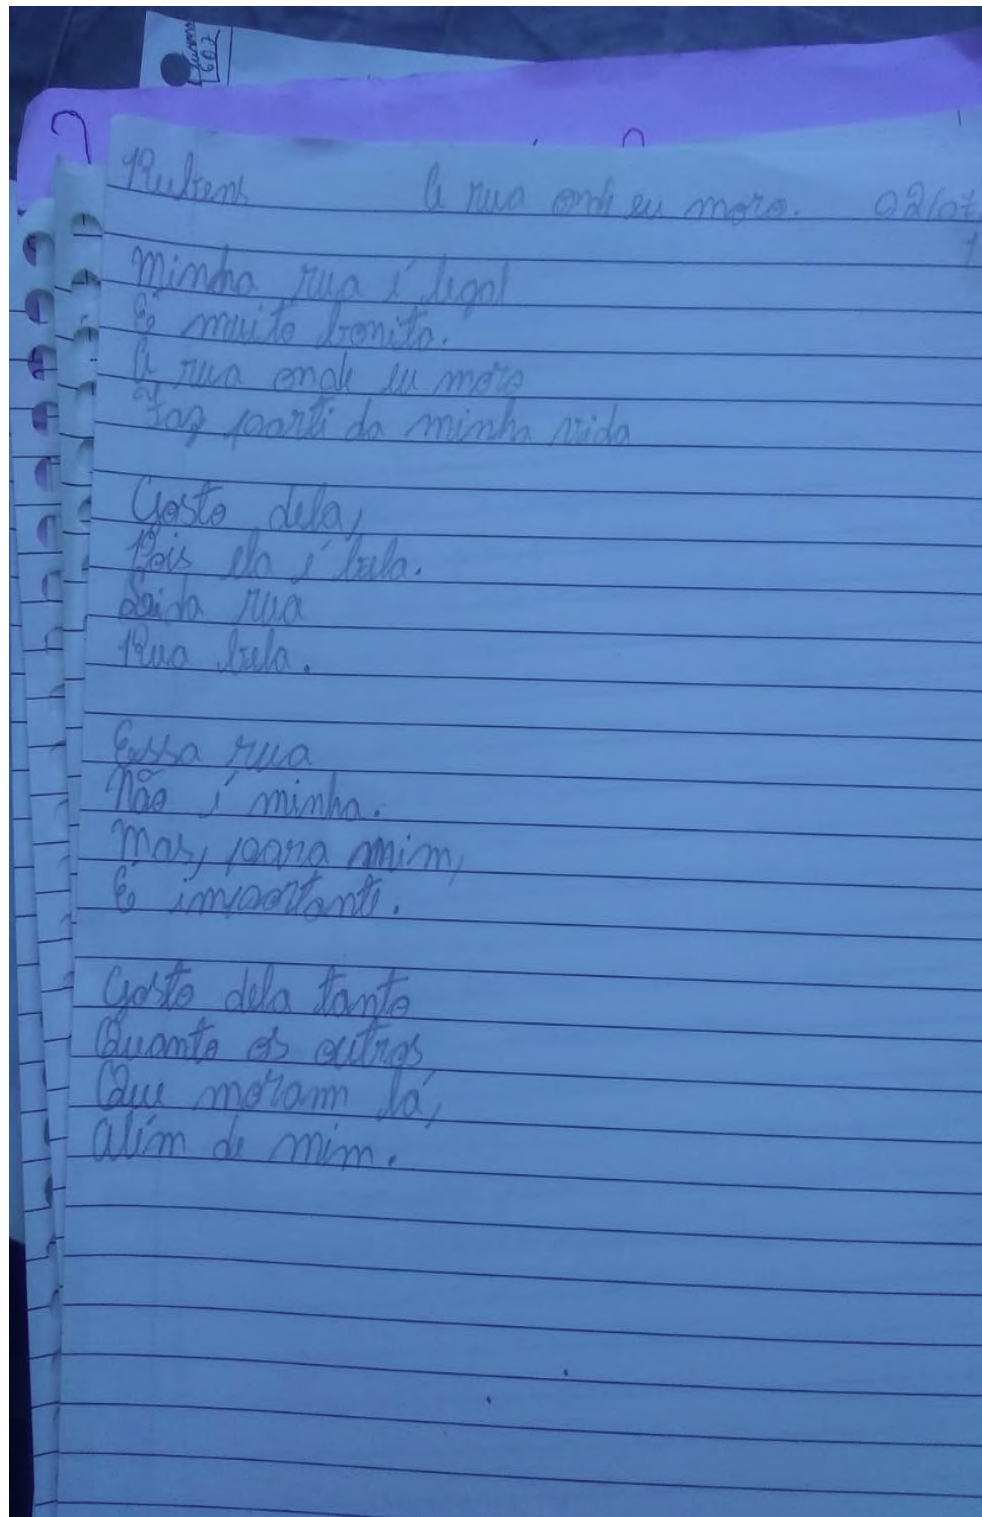 Turma
602
Rubens A rua onde eu moro. 02/07
1
Minha rua é legal
É muito bonita.
A rua onde eu moro
Faz parte da minha vida
Gosto dela,
Pois ela é bela.
Linda rua
Rua bela.
Essa rua
Não é minha.
Mas, para mim,
É importante.
Gosto dela tanto
Quanto os outros,
Que moram lá,
Além de mim.